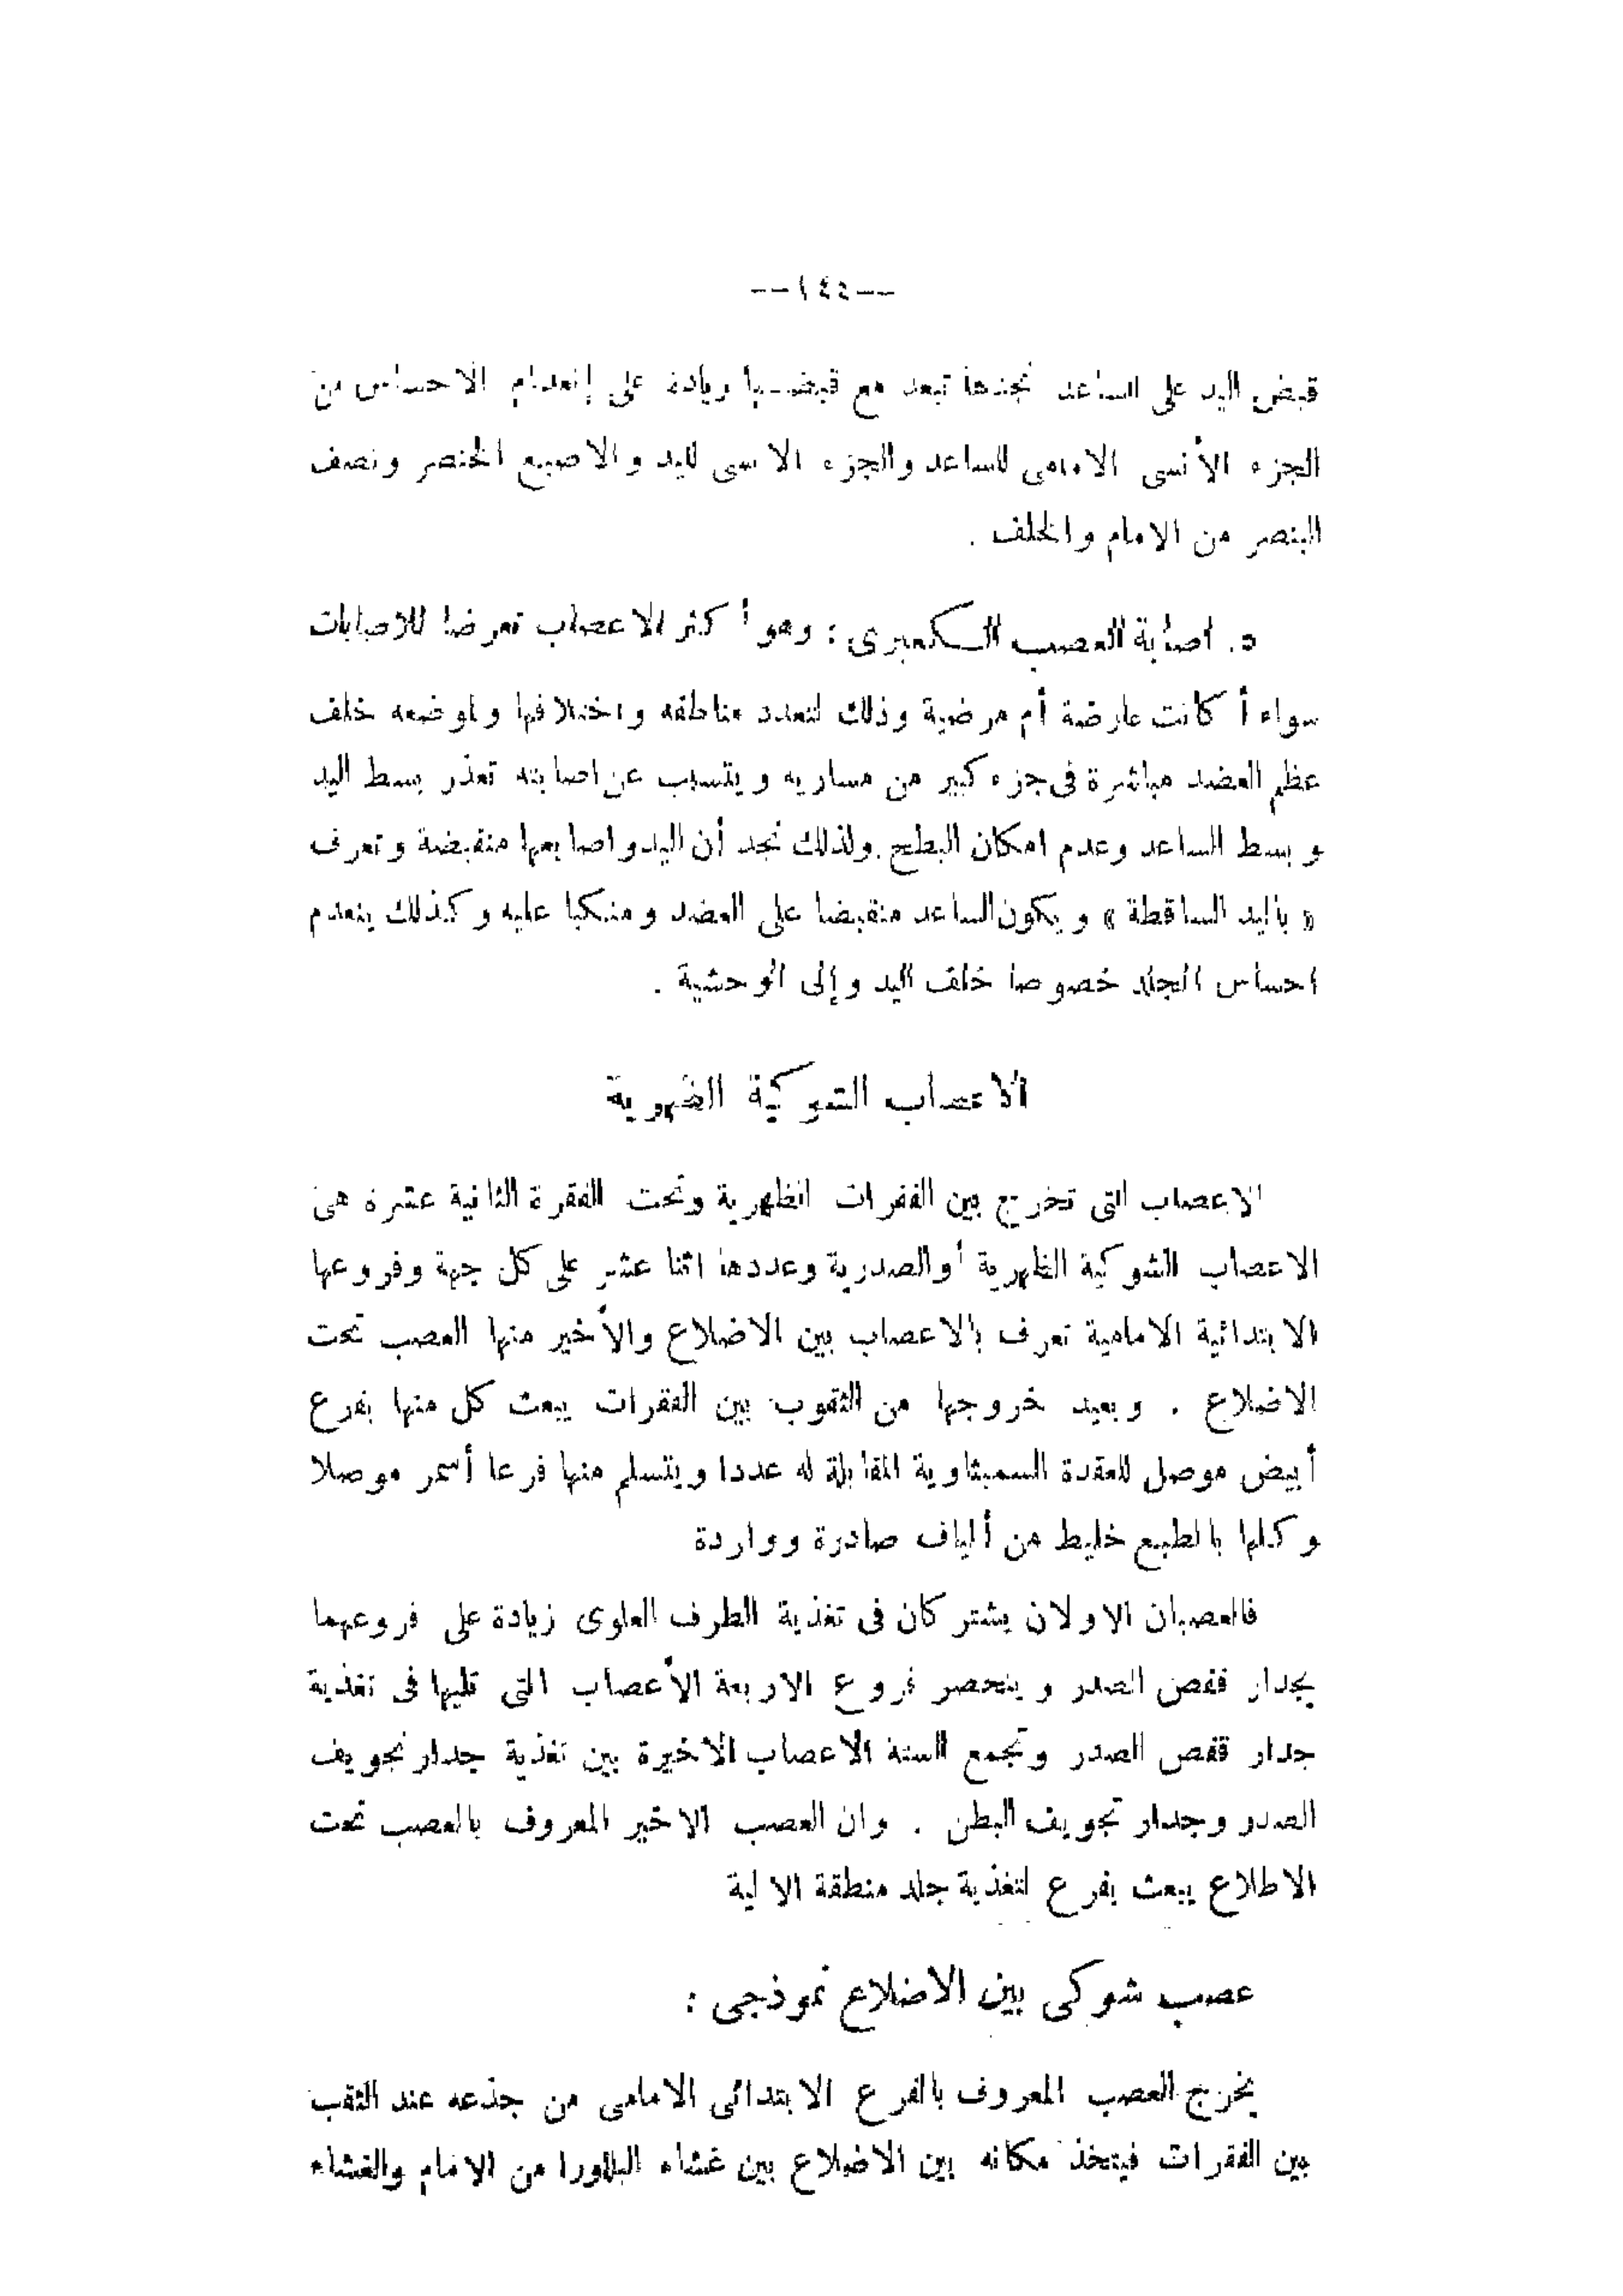 --١٤٥--
قبض اليد على الساعد نجدها تبعد مع قبضها زيادة على إنعدام الاحساس من
الجزء الأنسى الامامى للساعد والجزء الانسى لليد والاصبع الخنصر ونصف
البنصر من الامام والخلف .
٥. اصابة العصب الكعبرى : وهو أكثر الاعصاب تعرضا للاصابات
سواء أكانت عارضة أم مرضية وذلك لتعدد مناطقه واختلافها ولوضعه خلف
عظم العضد مباشرة فى جزء كبير من مساريه ويتسبب عن اصابته تعذر بسط اليد
وبسط الساعد وعدم امكان البطح. ولذلك نجد أن اليد واصابعها منقبضة وتعرف
« باليد الساقطة » ويكون الساعد منقبضا على العضد ومنكبا عليه وكذلك ينعدم
احساس الجلد خصوصا خلف اليد وإلى الوحشية .
الاعصاب الشوكية الظهرية
الاعصاب التى تخرج بين الفقرات الظهرية وتحت الفقرة الثانية عشرة هى
الاعصاب الشوكية الظهرية أو الصدرية وعددها اثنا عشر على كل جهة وفروعها
الابتدائية الامامية تعرف بالاعصاب بين الاضلاع والأخير منها العصب تحت
الاضلاع . وبعيد خروجها من الثقوب بين الفقرات يبعث كل منها بفرع
أبيض موصل للعقدة السمبثاوية المقابلة له عددا ويتسلم منها فرعا أسمر موصلا
وكلها بالطبع خليط من ألياف صادرة وواردة
فالعصبان الاولان يشتركان فى تغذية الطرف العلوى زيادة على فروعهما
بجدار قفص الصدر وينحصر فروع الاربعة الأعصاب التى تليها فى تغذية
جدار قفص الصدر وتجمع الستة الاعصاب الاخيرة بين تغذية جدار تجويف
الصدر وجدار تجويف البطن . وان العصب الاخير المعروف بالعصب تحت
الاطلاع يبعث بفرع لتغذية جلد منطقة الالية
عصب شوكى بين الاضلاع نموذجى :
يخرج العصب المعروف بالفرع الابتدائى الامامى من جذعه عند الثقب
بين الفقرات فيتخذ مكانه بين الاضلاع بين غشاء البللورا من الامام والغشاء